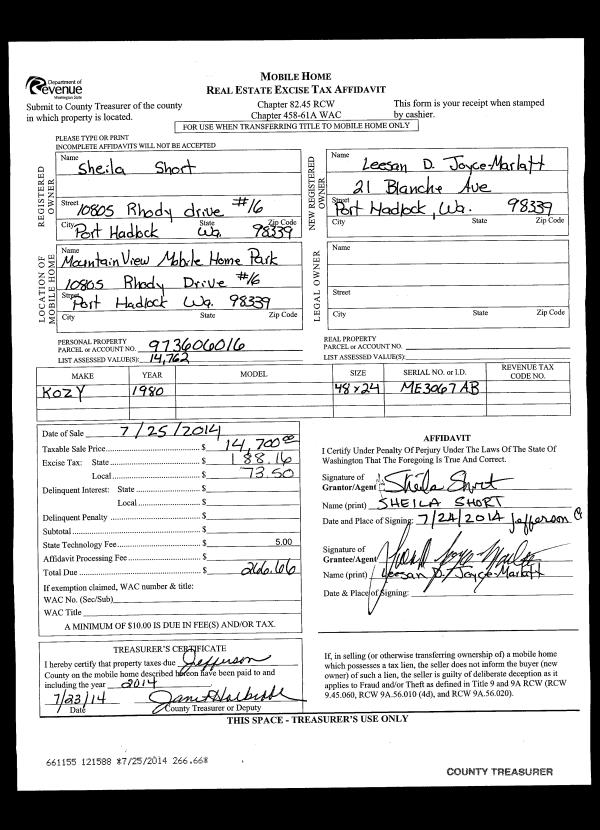 Department of
Revenue
Washington State
MOBILE HOME
REAL ESTATE EXCISE TAX AFFIDAVIT
Submit to County Treasurer of the county
in which property is located.
Chapter 82.45 RCW
Chapter 458-61A WAC
This form is your receipt when stamped
by cashier.
FOR USE WHEN TRANSFERRING TITLE TO MOBILE HOME ONLY
PLEASE TYPE OR PRINT
INCOMPLETE AFFIDAVITS WILL NOT BE ACCEPTED
REGISTERED
OWNER
Name
Sheila Short
Street 10805 Rhody drive #16
City State Zip Code
Port Hadlock Wa. 98339
NEW REGISTERED
OWNER
Name
Leesan D. Joyce-Marlatt
21 Blanche Ave
Street
Port Hadlock, Wa. 98339
City State Zip Code
LOCATION OF
MOBILE HOME
Name
Mountain View Mobile Home Park
10805 Rhody Drive #16
Street
Port Hadlock Wa. 98339
City State Zip Code
LEGAL OWNER
Name
Street
City State Zip Code
PERSONAL PROPERTY
PARCEL or ACCOUNT NO. 973606016
LIST ASSESSED VALUE(S): 14,762
REAL PROPERTY
PARCEL or ACCOUNT NO.
LIST ASSESSED VALUE(S):
MAKE YEAR MODEL SIZE SERIAL NO. or I.D. REVENUE TAX
CODE NO.
KOZY 1980 48x24 ME3067AB
Date of Sale 7/25/2014
Taxable Sale Price $ 14,700.00
Excise Tax: State $ 188.16
Local $ 73.50
Delinquent Interest: State $
Local $
Delinquent Penalty $
Subtotal $
State Technology Fee $ 5.00
Affidavit Processing Fee $
Total Due $ 266.66
If exemption claimed, WAC number & title:
WAC No. (Sec/Sub)
WAC Title
A MINIMUM OF $10.00 IS DUE IN FEE(S) AND/OR TAX.
AFFIDAVIT
I Certify Under Penalty Of Perjury Under The Laws Of The State Of
Washington That the Foregoing Is True And Correct.
Signature of
Grantor/Agent Sheila Short
Name (print) SHEILA SHORT
Date and Place of Signing: 7/24/2014 Jefferson
Signature of
Grantee/Agent
Name (print) Leesan D. Joyce-Marlatt
Date & Place of Signing:
TREASURER'S CERTIFICATE
I hereby certify that property taxes due Jefferson
County on the mobile home described hereon have been paid to and
including the year 2014
7/23/14
Date County Treasurer or Deputy
If, in selling (or otherwise transferring ownership of) a mobile home
which possesses a tax lien, the seller does not inform the buyer (new
owner) of such a lien, the seller is guilty of deliberate deception as it
applies to Fraud and/or Theft as defined in Title 9 and 9A RCW (RCW
9.45.060, RCW 9A.56.010 (4d), and RCW 9A.56.020).
THIS SPACE - TREASURER'S USE ONLY
661155 121588 *7/25/2014 266.66*
COUNTY TREASURER